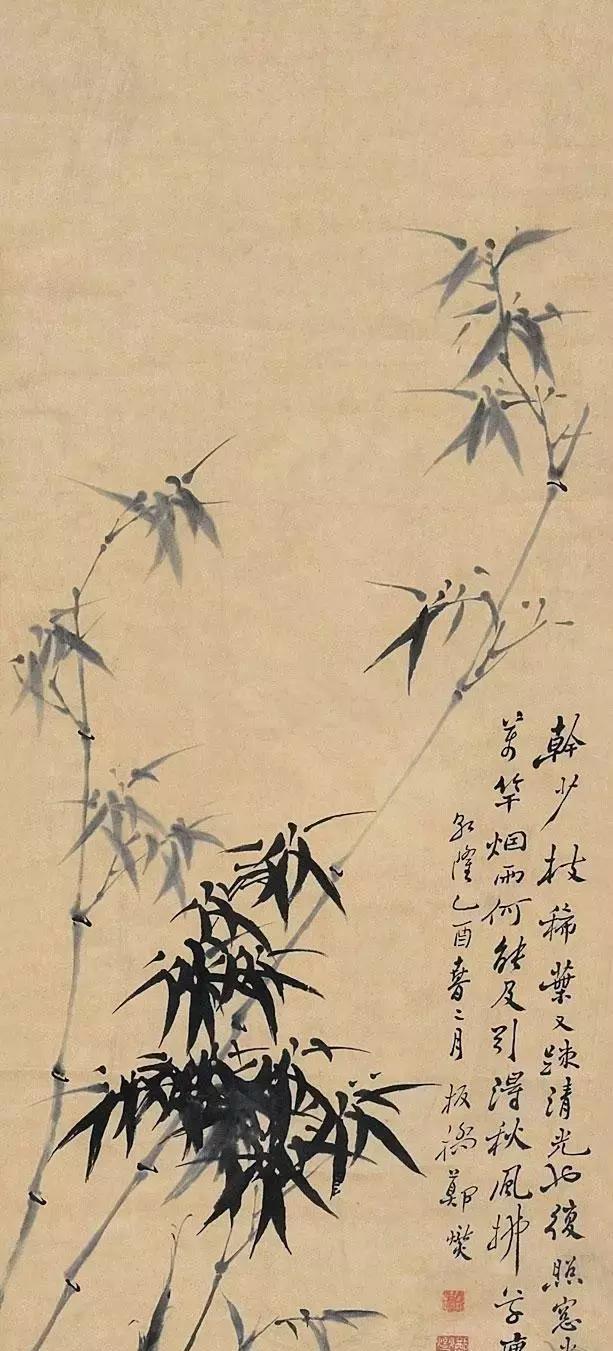 幹少枝稀葉又疎清光也復照窓
萬竿烟雨何能及引得秋風拂草
乾隆乙酉春二月板橋鄭燮